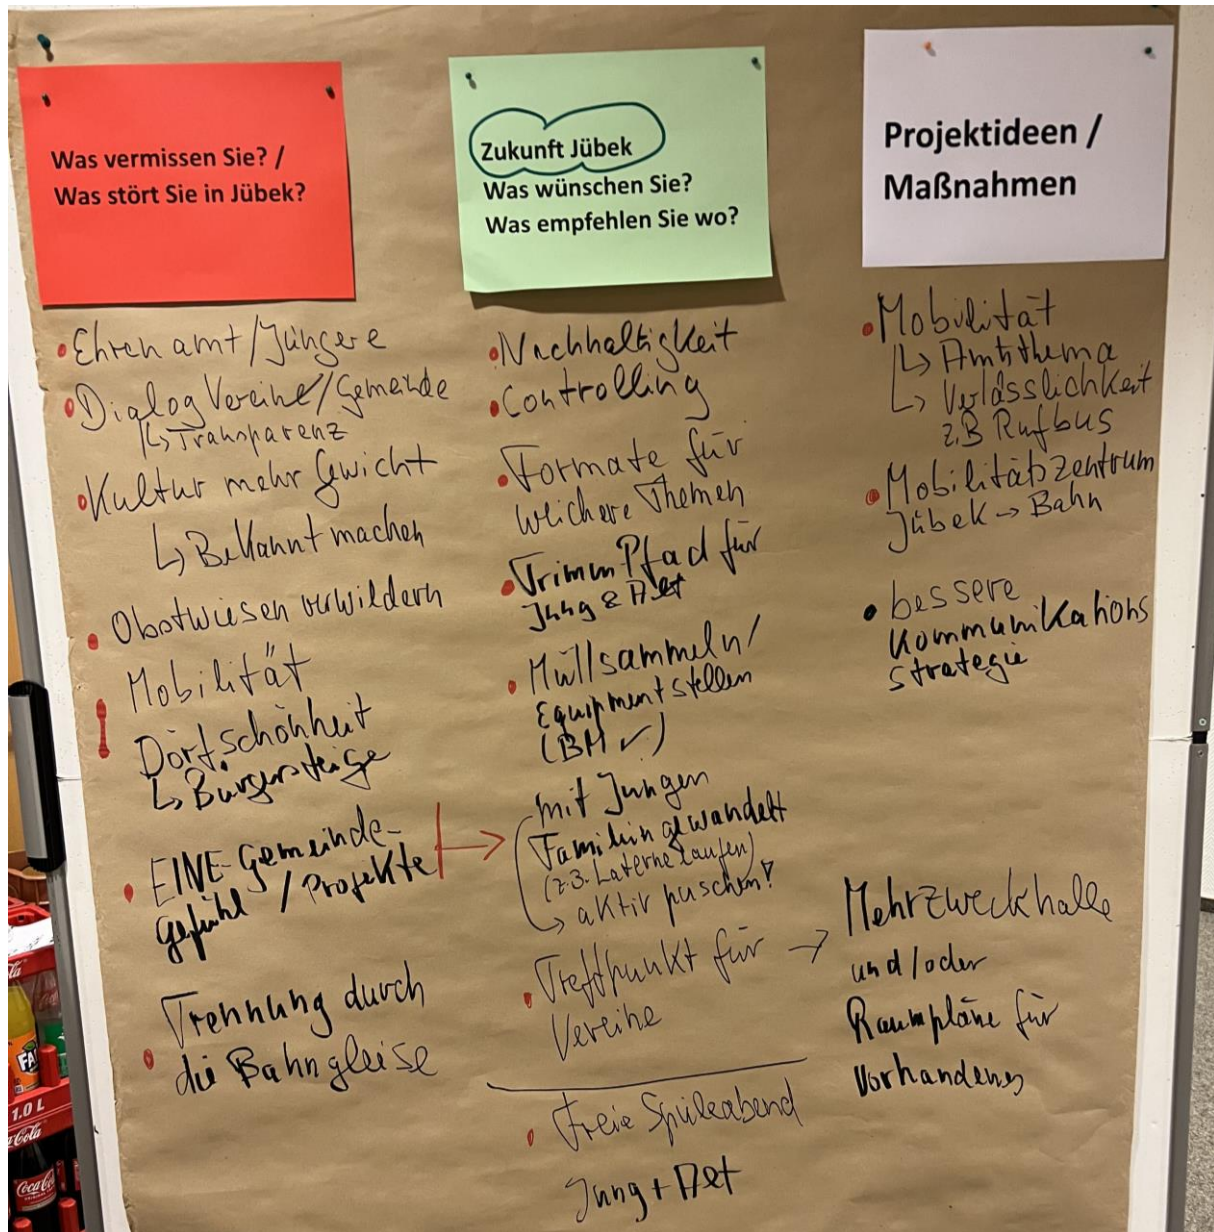 Was vermissen Sie? /
Was stört Sie in Jübek?
• Ehrenamt/Jüngere
• Dialog Vereine/Gemeinde
↳ Transparenz
• Kultur mehr Gewicht
↳ Bekannt machen
• Obstwiesen verwildern
Mobilität
Dorfschönheit
↳ Bürgersteige
• EINE-Gemeinde-
gefühl / Projekte
• Trennung durch
die Bahngleise
Zukunft Jübek
Was wünschen Sie?
Was empfehlen Sie wo?
• Nachhaltigkeit
• Controlling
• Formate für
weichere Themen
• Trimm Pfad für
Jung & Alt
• Müllsammeln/
Equipment stellen
(BM ✓)
mit Jungen
Familien gewandelt
(z.B. Laterne laufen)
→ aktiv puschen!
• Treffpunkt für →
Vereine
• Freie Spieleabend
Jung + Alt
Projektideen /
Maßnahmen
• Mobilität
↳ Amtsthema
↳ Verlässlichkeit
z.B Rufbus
• Mobilitätszentrum
Jübek → Bahn
• bessere
Kommunikations
strategie
Mehrzweckhalle
und/oder
Raumpläne für
Vorhandenes
1.0 L
Coca-Cola
Coca-Cola